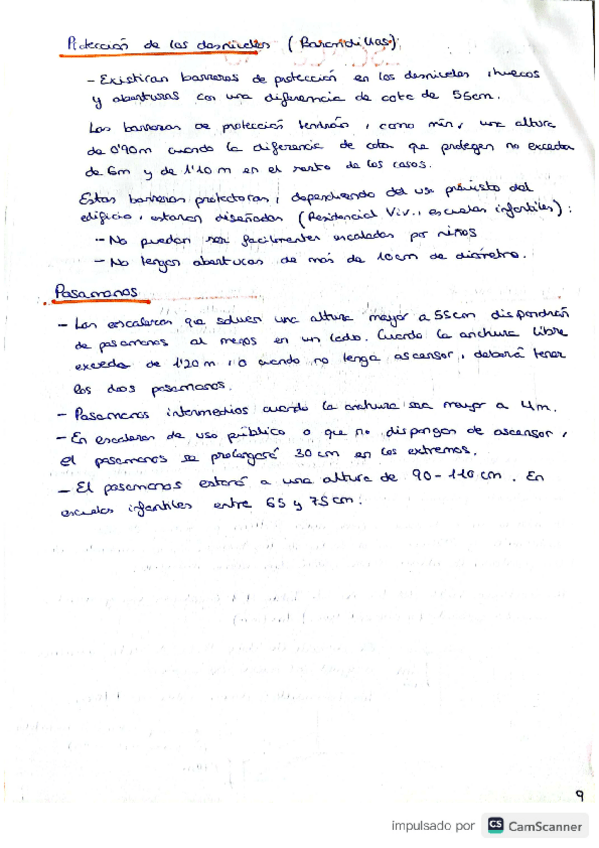 Protección de los desniveles (Barandillas):
- Existiran barreras de protección en los desniveles, huecos
y aberturas con una diferencia de cota de 55cm.
Las barreras de protección tendrán, como mín, una altura
de 0'90m cuando la diferencia de cota que protegen no exceda
de 6m y de 1'10 m en el resto de los casos.
Estas barreras protectoras, dependiendo del uso previsto del
edificio, estaran diseñadas (Residencial Viv., escuelas infantiles):
- No puedan ser facilmente escaladas por niños
- No tengan aberturas de más de 10cm de diámetro.
Pasamanos
- Las escaleras que salven una altura mayor a 55cm dispondrán
de pasamanos al menos en un lado. Cuando la anchura libre
exceda de 1'20m, o cuando no tenga ascensor, deberá tener
los dos pasamanos.
- Pasamanos intermedios cuando la anchura sea mayor a 4m.
- En escaleras de uso público o que no dispongan de ascensor,
el pasamanos se prolongará 30cm en los extremos.
- El pasamanos estará a una altura de 90-110cm. En
escuelas infantiles entre 65 y 75cm.
9
impulsado por CS CamScanner